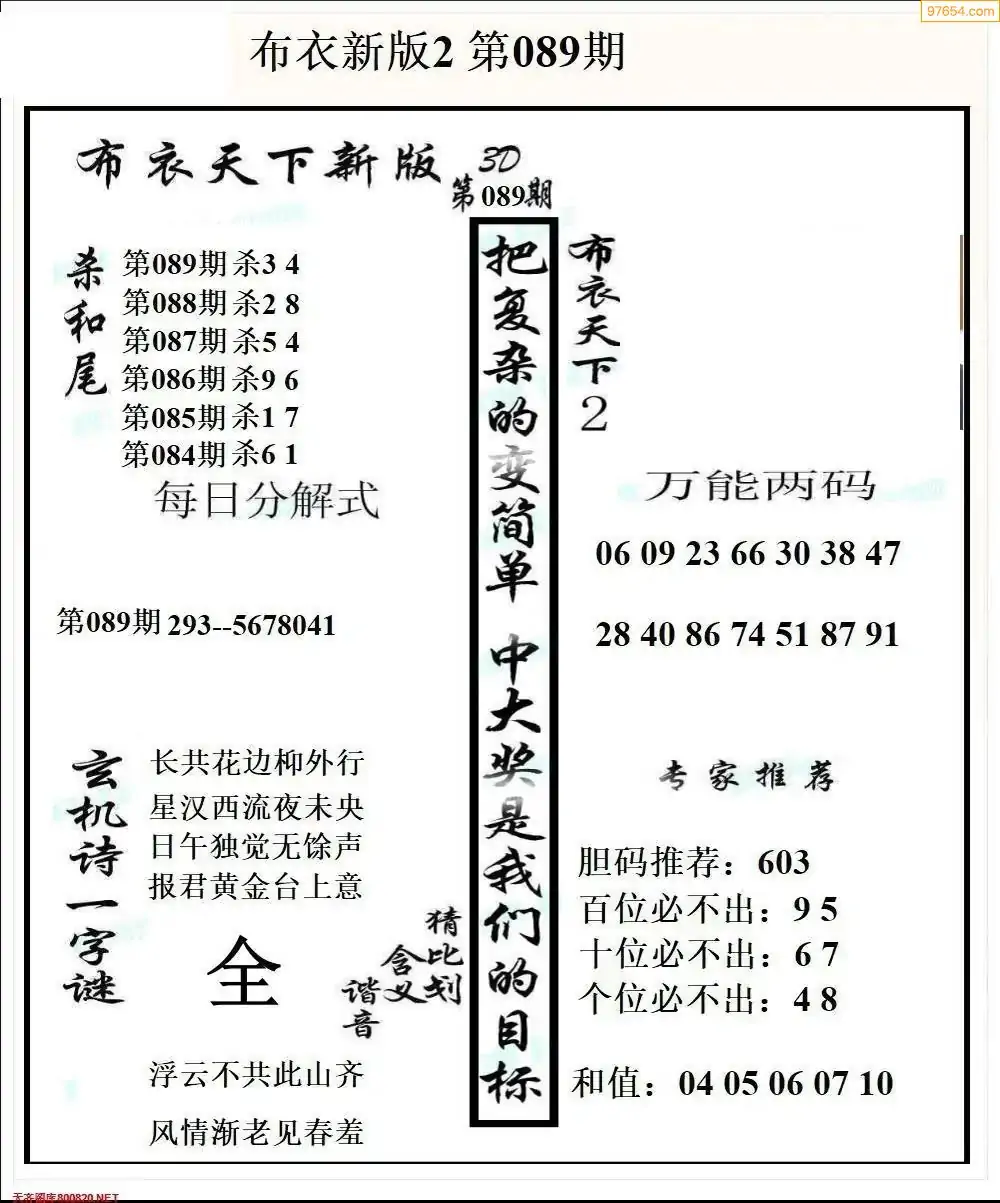 97654.com
布衣新版2 第089期
布衣天下新版
3D
第089期
杀和尾
第089期杀3 4
第088期杀2 8
第087期杀5 4
第086期杀9 6
第085期杀1 7
第084期杀6 1
每日分解式
第089期 293--5678041
玄机诗一字谜
长共花边柳外行
星汉西流夜未央
日午独觉无馀声
报君黄金台上意
全
猜比划
含义
谐音
浮云不共此山齐
风情渐老见春羞
把复杂的变简单 中大奖是我们的目标
布衣天下2
万能两码
06 09 23 66 30 38 47
28 40 86 74 51 87 91
专家推荐
胆码推荐：603
百位必不出：9 5
十位必不出：6 7
个位必不出：4 8
和值：04 05 06 07 10
天齐图库800820.NET